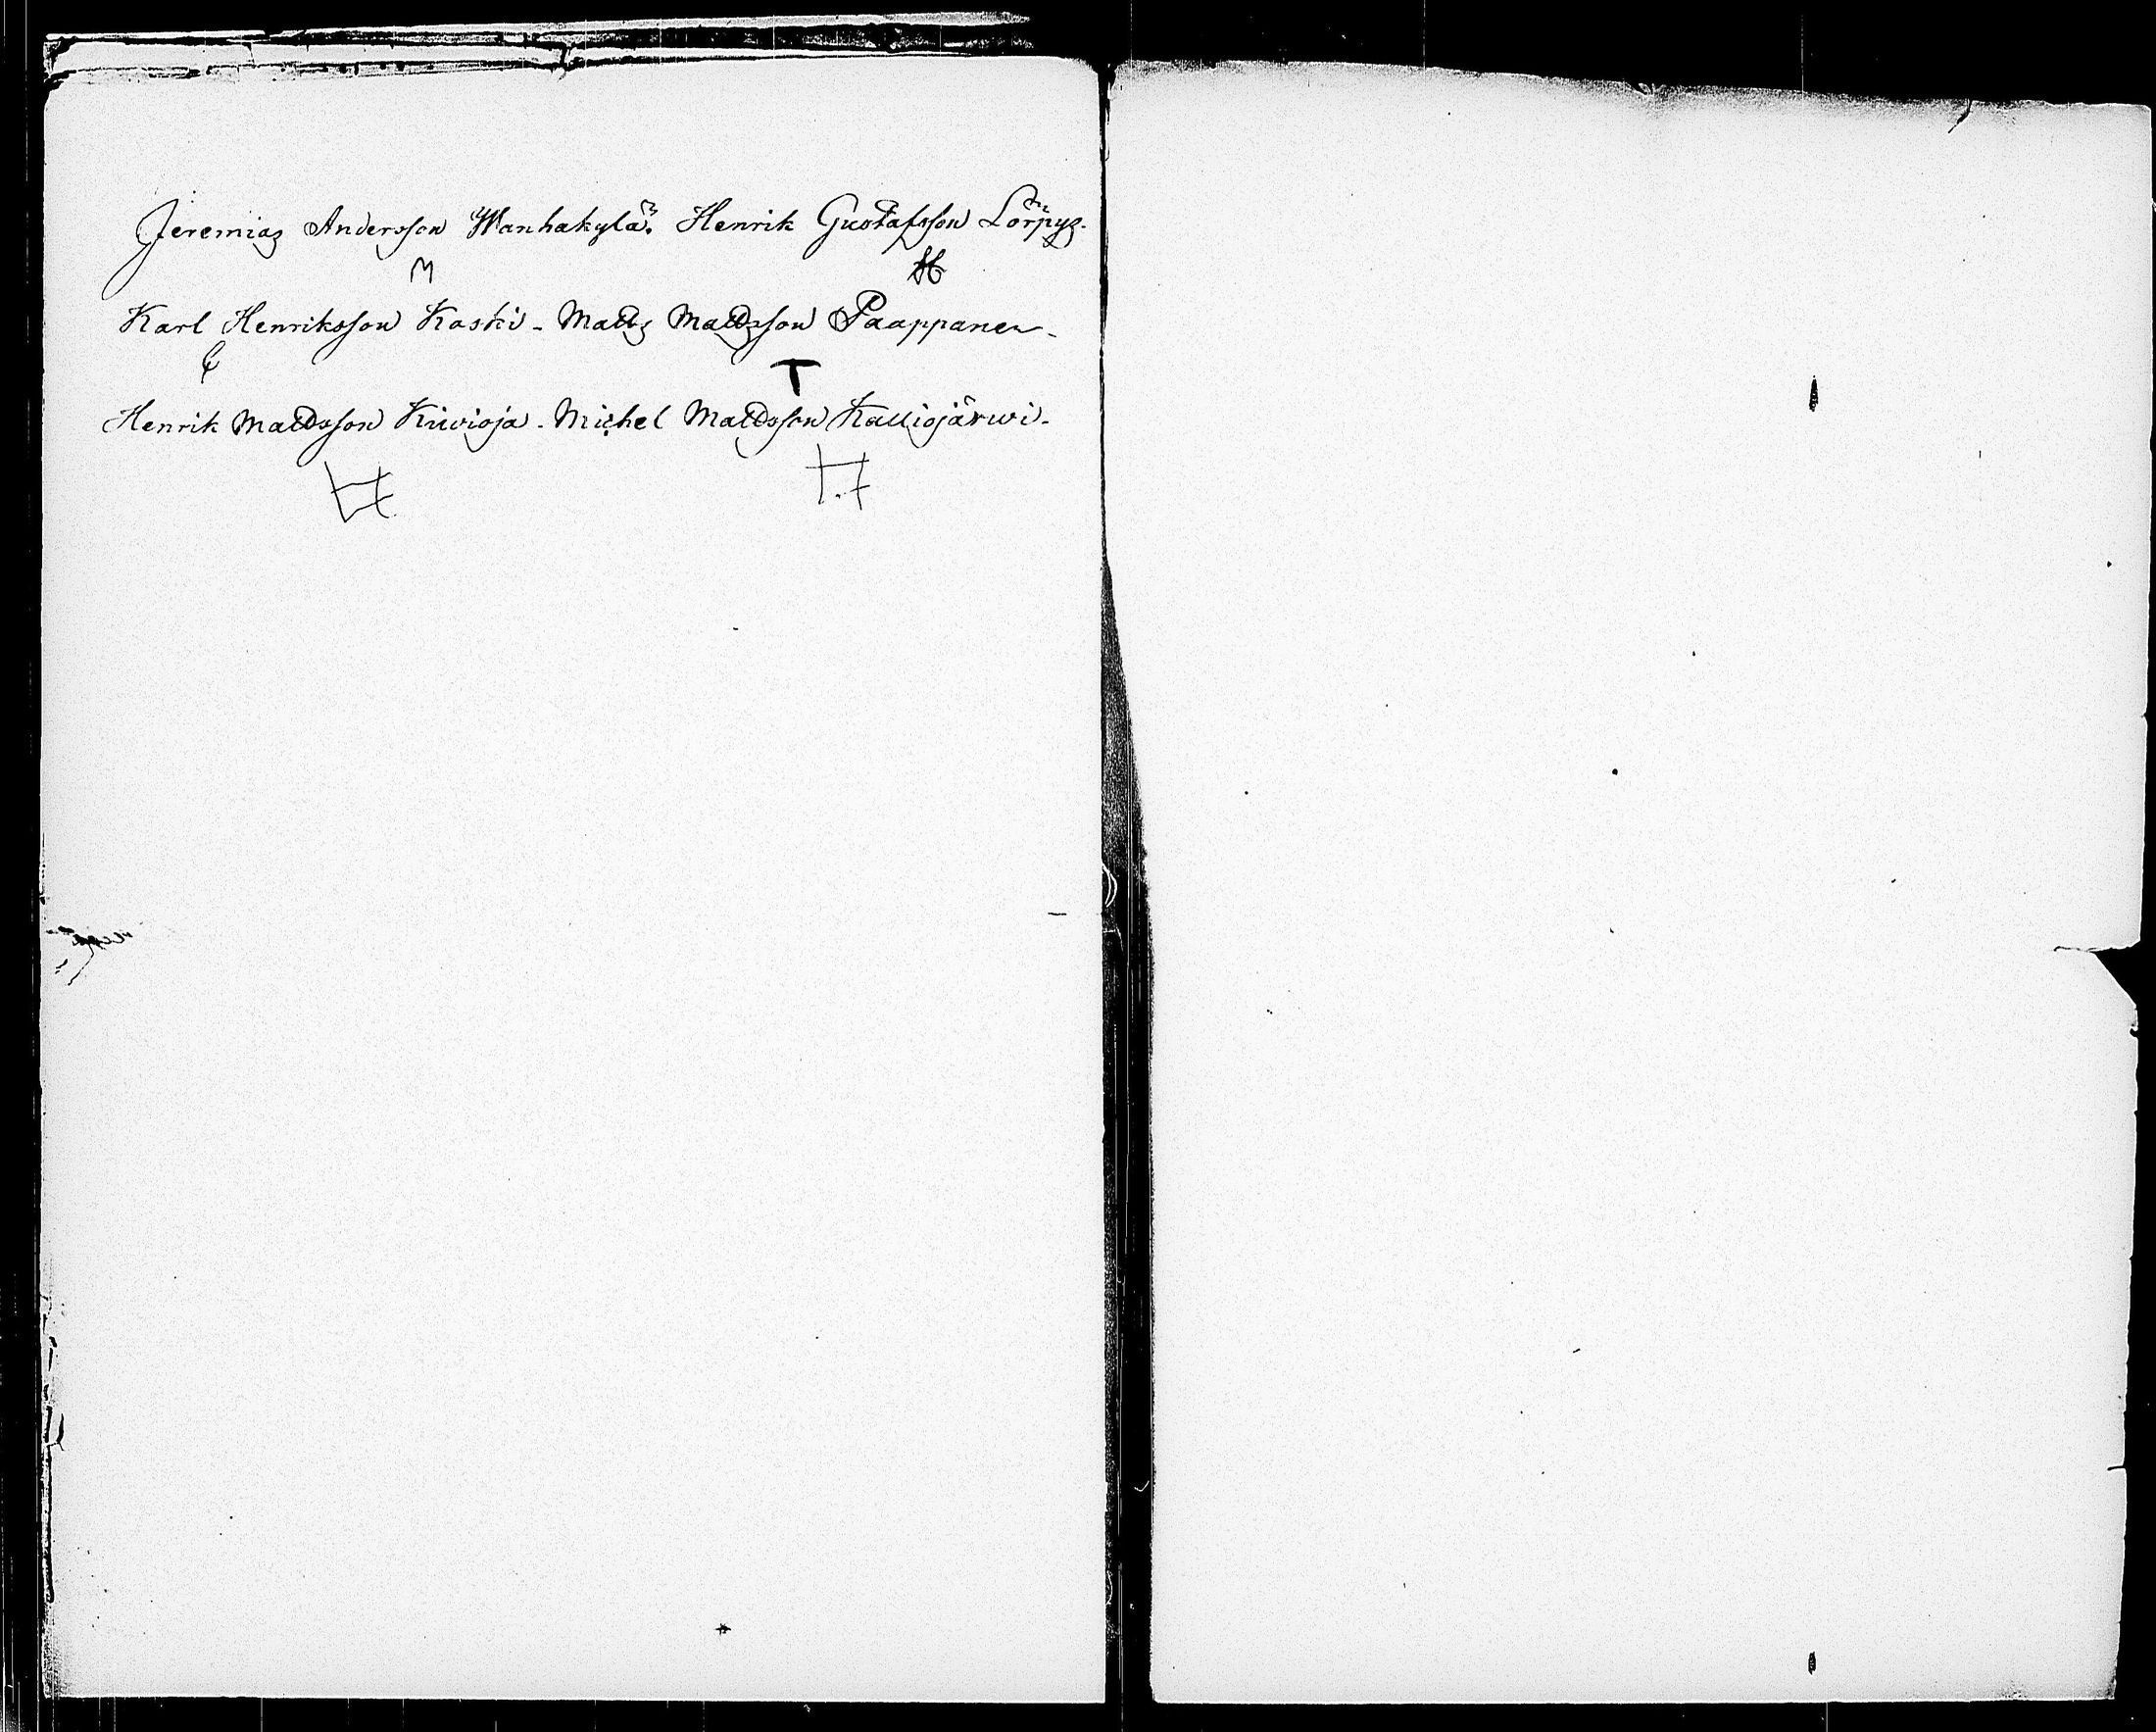 Jeremias Andersson Wanhakylä. Henrik Gustafsson Lörpys.
M H
Karl Henriksson Koski - Matts Mattsson Paappanen -
T
Henrik Mattsson Kiwioja - Michel Mattsson Kalliojärwi -